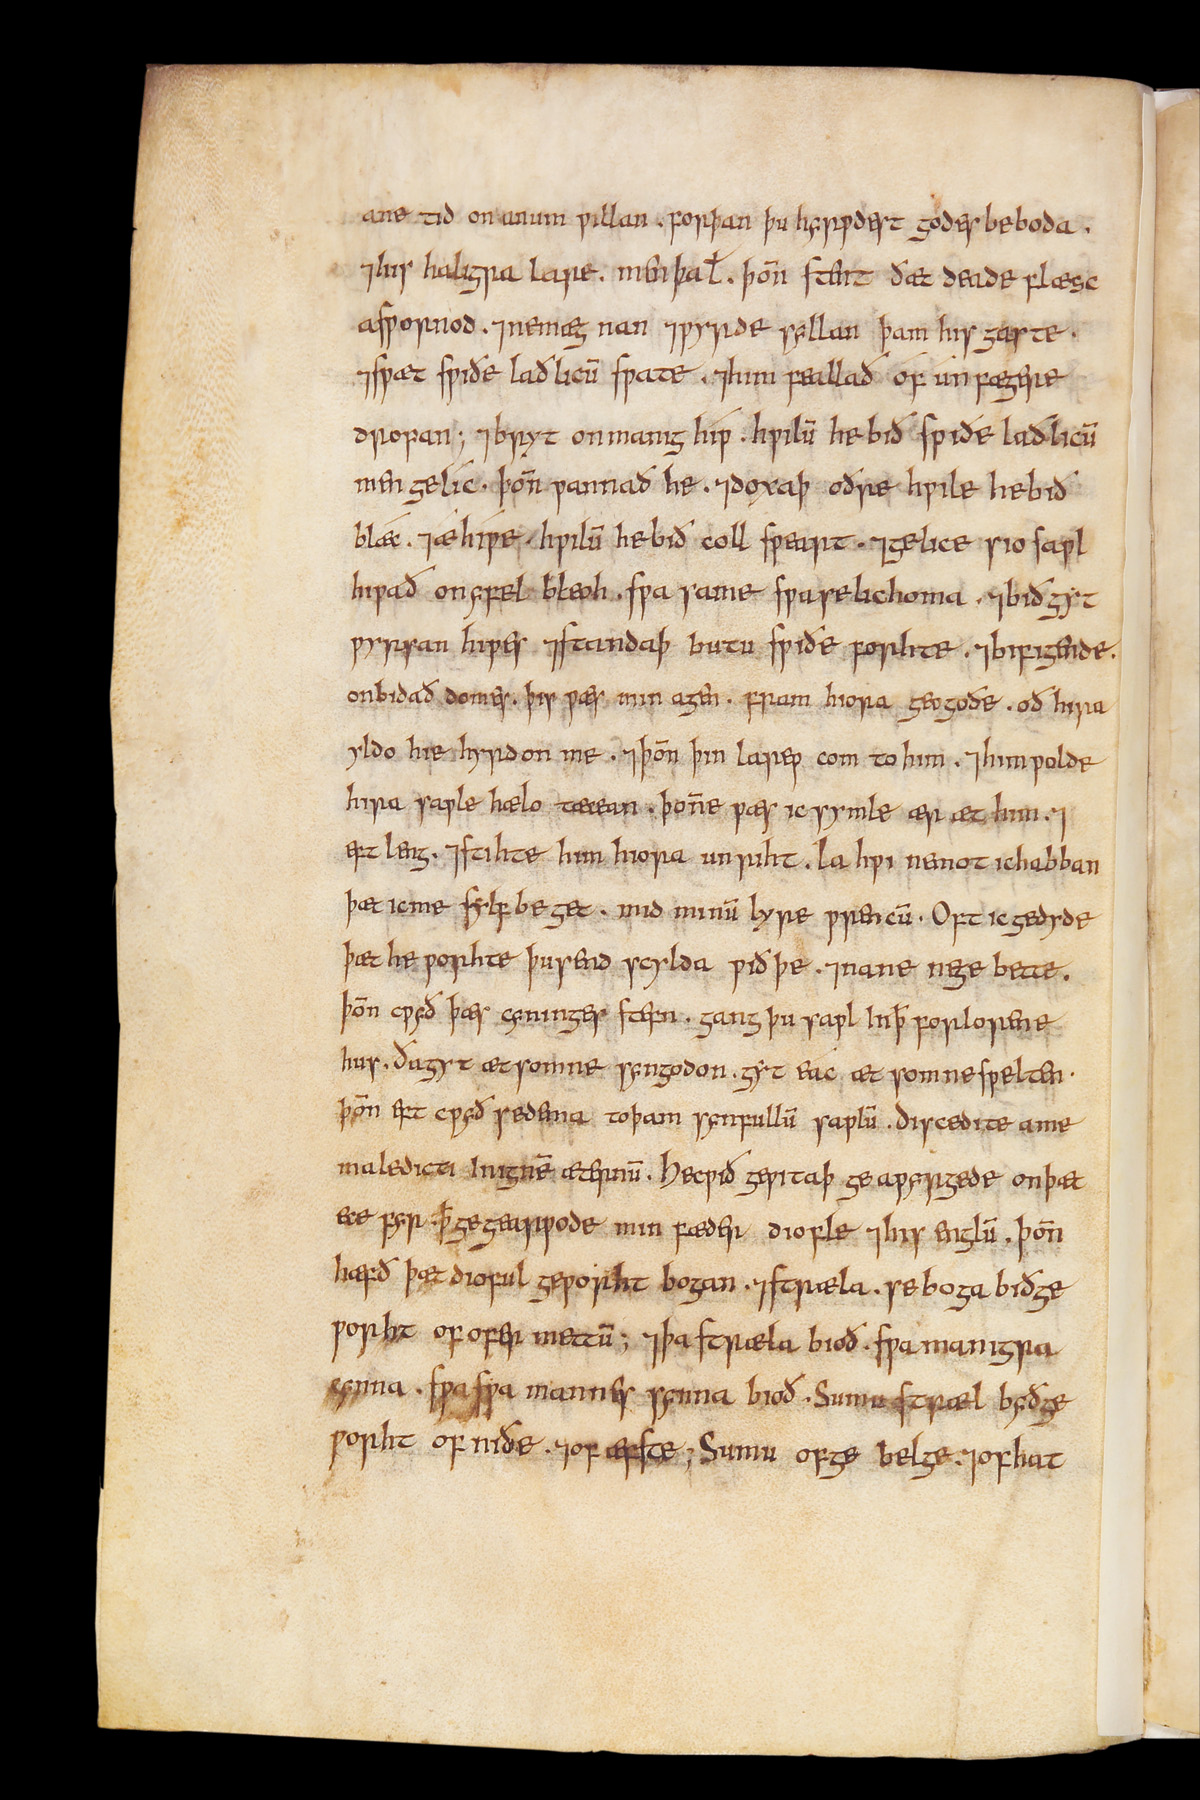 ane tid on anum ƿillan . forþan þu hyrƿdest godes beboda .
⁊ his haligra lare . men þa ł . þoñ stent ðæt deade flæsc
aspornod . ⁊ nemæg nan ⁊ƿyrde syllan þam his gaste .
⁊ sƿæt sƿiðe laðlicū sƿate . ⁊ him feallað of unfægere
dropan ; ⁊ bryt on manig hiƿ . hƿilū he bið sƿiðe laðlicū
men gelic . þoñ ƿannað he . ⁊ doxaþ oðre hƿile he bið
blæc . ⁊ æhiƿe . hƿilū he bið coll sƿeart . ⁊ gelice sio saƿl
hiƿað on yfel bleoh . sƿa same sƿa se lichoma . ⁊ bið gyt
ƿyrsan hiƿes ⁊ standaþ butu sƿiðe forhte . ⁊ bifigende .
onbidað domes . þis ƿæs min agen . fram hiora geogoðe . oð hira
yldo hie hyrdon me . ⁊ þoñ þin lareƿ com to him . ⁊ him ƿolde
hira saƿle hælo tæcean . þoñe ƿæs ic symle ær æt him . ⁊
eft leng . ⁊ stihte him hiora unriht . la hƿi nemot ic habban
þæt ic me sylf beget . mid minū lyre ƿrencū . Oft ic gedyde
þæt he ƿorhte þusend scylda ƿið þe . ⁊ nane negebette .
þoñ cƿyð þæs cyninges stefn . gang þu saƿl in þ̄ forlorene
hus . ða gyt ætsomne syngodon . gyt eac ætsomne sƿelten .
þoñ eft cƿyð se dema to þam synfullū saƿlū . Discedite ame
maledicti In ignē æternū . He cƿið geƿitaþ ge aƿyrgede on þæt
ece fyr . þ̄ gegearƿode min fæder diofle ⁊ his englū . þoñ
hæfð þæt dioful geƿorht bogan . ⁊ stræla . se boga bið ge
ƿorht of ofer mettū ; ⁊ þa stræla bioð . sƿa manigra
cynna . sƿa sƿa mannes synna bioð . Sumu stræl byð ge
ƿorht of niðe . ⁊ of æfste ; Sumu of ge belge . ⁊ of hat